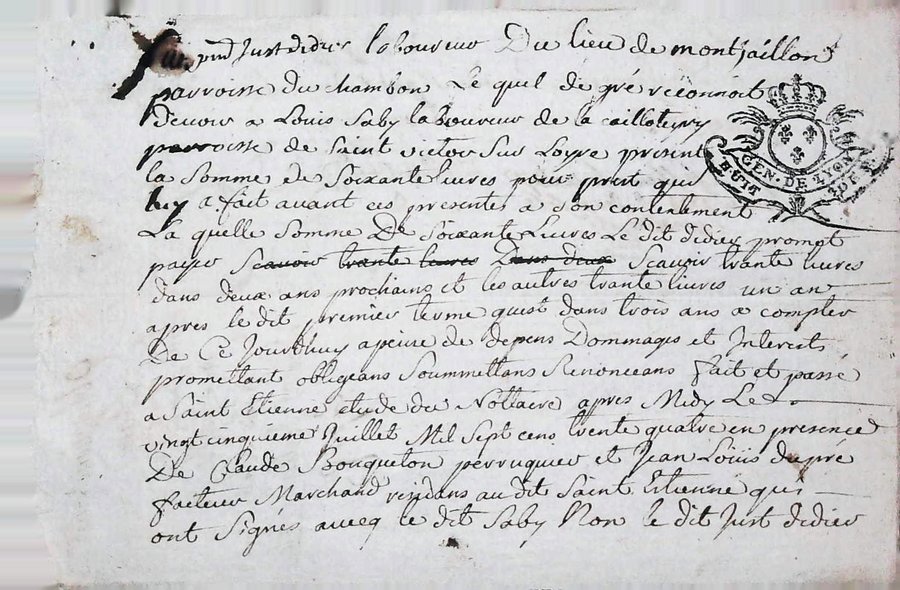 just didier laboureur Du lieu de montjaillon
parroisse du chambon Le quel de gré reconnoit
devoir a Louis Saby laboureur de la
parroisse de Saint victor Sur Loyre present
la Somme de Soixante livres pour prest qui
luy a fait avant ces presentes a son contentement
La quelle Somme De Soixante Livres Le dit didier prompt
payer Scavoir trante livres Dans deux Scavoir trante livres
dans deux ans prochains et les autres trante livres un an
apres le dit premier terme quest dans trois ans a compter
De Ce Jourdhuy a peine de depens Dommages et Interests
promettant obligeans Soummettans Renonceans fait et passé
a Saint Etienne etude du Nottaire apres Midy Le
vingt cinquieme Juillet Mil Sept cens trente quatre en presence
De Claude perruquier et Jean Loüis dupré
facteur Marchand residans au dit Saint Etienne qui
ont Signés avecq le dit Saby Non le dit Just didier
GEN. DE LYON
HUIT